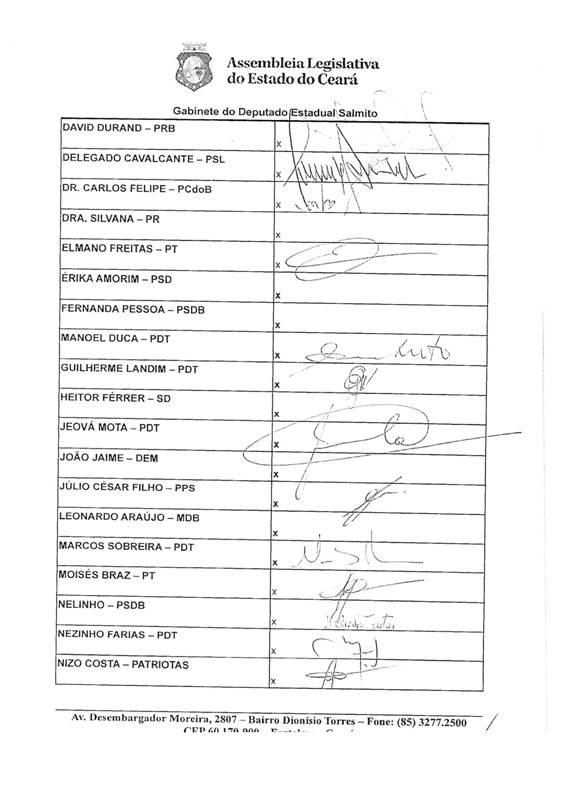 Assembleia Legislativa
do Estado do Ceará
Gabinete do Deputado Estadual Salmito
DAVID DURAND – PRB
x
DELEGADO CAVALCANTE – PSL
x
DR. CARLOS FELIPE – PCdoB
x
DRA. SILVANA – PR
x
ELMANO FREITAS – PT
x
ÉRIKA AMORIM – PSD
x
FERNANDA PESSOA – PSDB
x
MANOEL DUCA – PDT
x
GUILHERME LANDIM – PDT
x
HEITOR FÉRRER – SD
x
JEOVÁ MOTA – PDT
x
JOÃO JAIME – DEM
x
JÚLIO CÉSAR FILHO – PPS
x
LEONARDO ARAÚJO – MDB
x
MARCOS SOBREIRA – PDT
x
MOISÉS BRAZ – PT
x
NELINHO – PSDB
x
NEZINHO FARIAS – PDT
x
NIZO COSTA – PATRIOTAS
x
Av. Desembargador Moreira, 2807 – Bairro Dionísio Torres – Fone: (85) 3277.2500
CEP 60.170-900